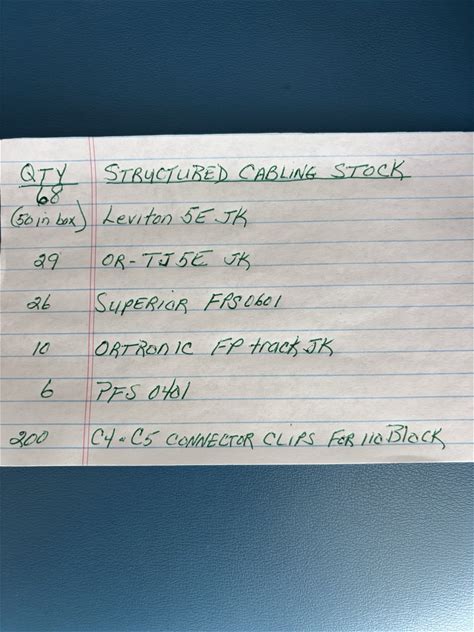 QTY STRUCTURED CABLING STOCK
68
(50 in box) Leviton 5E JK
29 OR-TJ5E JK
26 SUPERIOR FPS0601
10 ORTRONIC FP track JK
6 PFS 0401
200 C4 - C5 CONNECTOR CLIPS FOR 110 Block